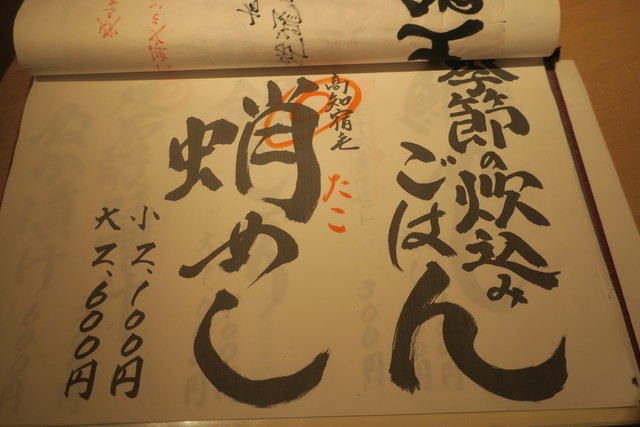 季節の炊込み
ごはん
高知宿毛
たこ
蛸めし
小 2,100円
大 2,600円